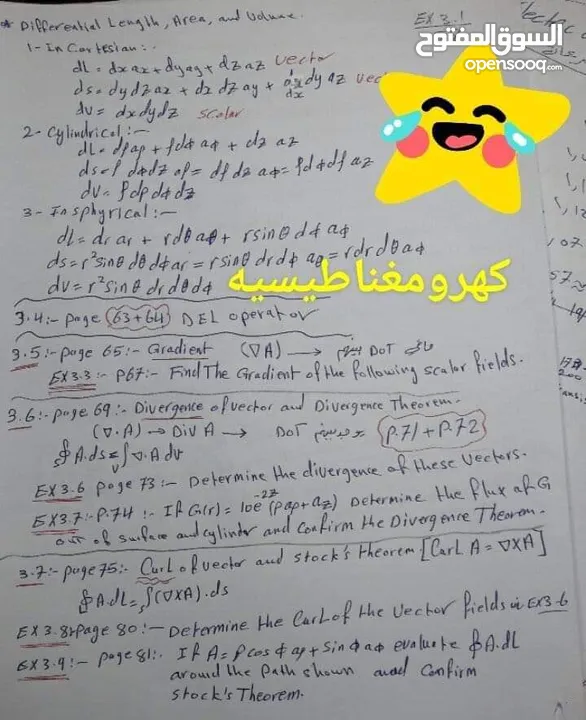 السوق المفتوح
opensooq.com
EX 3.1
* Differential Length, Area, and Volume.
1- In Cartesian:.
dl = dx ax + dy ay + dz az vector
ds = dy dz ax + dx dz ay + dx dy az vec
dv = dx dy dz scalar
2- Cylindrical:-
dl = dρ aρ + ρ dϕ aϕ + dz az
ds = ρ dϕ dz aρ = dρ dz aϕ = ρ dϕ dρ az
dv = ρ dρ dϕ dz
3- In sphyrical:-
dl = dr ar + r dθ aθ + r sinθ dϕ aϕ
ds = r² sinθ dθ dϕ ar = r sinθ dr dϕ aθ = r dr dθ aϕ
dv = r² sinθ dr dθ dϕ
كهرومغناطيسيه
3.4:- page (63+64) DEL operator
3.5:- page 65:- Gradient (∇A) → DOT
EX 3.3:- P67:- Find The Gradient of the following scalar fields.
3.6:- page 69:- Divergence of vector and Divergence Theorem.
(∇.A) → Div A → DOT (P.71 + P.72)
∮A.ds = ∫∇.A dv
EX 3.6 page 73:- Determine the divergence of these Vectors.
EX 3.7:- P.74:- If G(r) = 10e⁻²ᶻ (ρ aρ + az) Determine the flux of G
out of surface and cylinder and Confirm the Divergence Theorem.
3.7:- page 75:- Curl of vector and stock's theorem [Curl A = ∇XA]
∮A.dL = ∫(∇XA).ds
EX 3.8: page 80:- Determine the Curl of the Vector fields in EX3.6
EX 3.9:- page 81:- If A = ρ cos ϕ aρ + sin ϕ aϕ evaluate ∮A.dL
around the Path shown and Confirm
stock's Theorem.